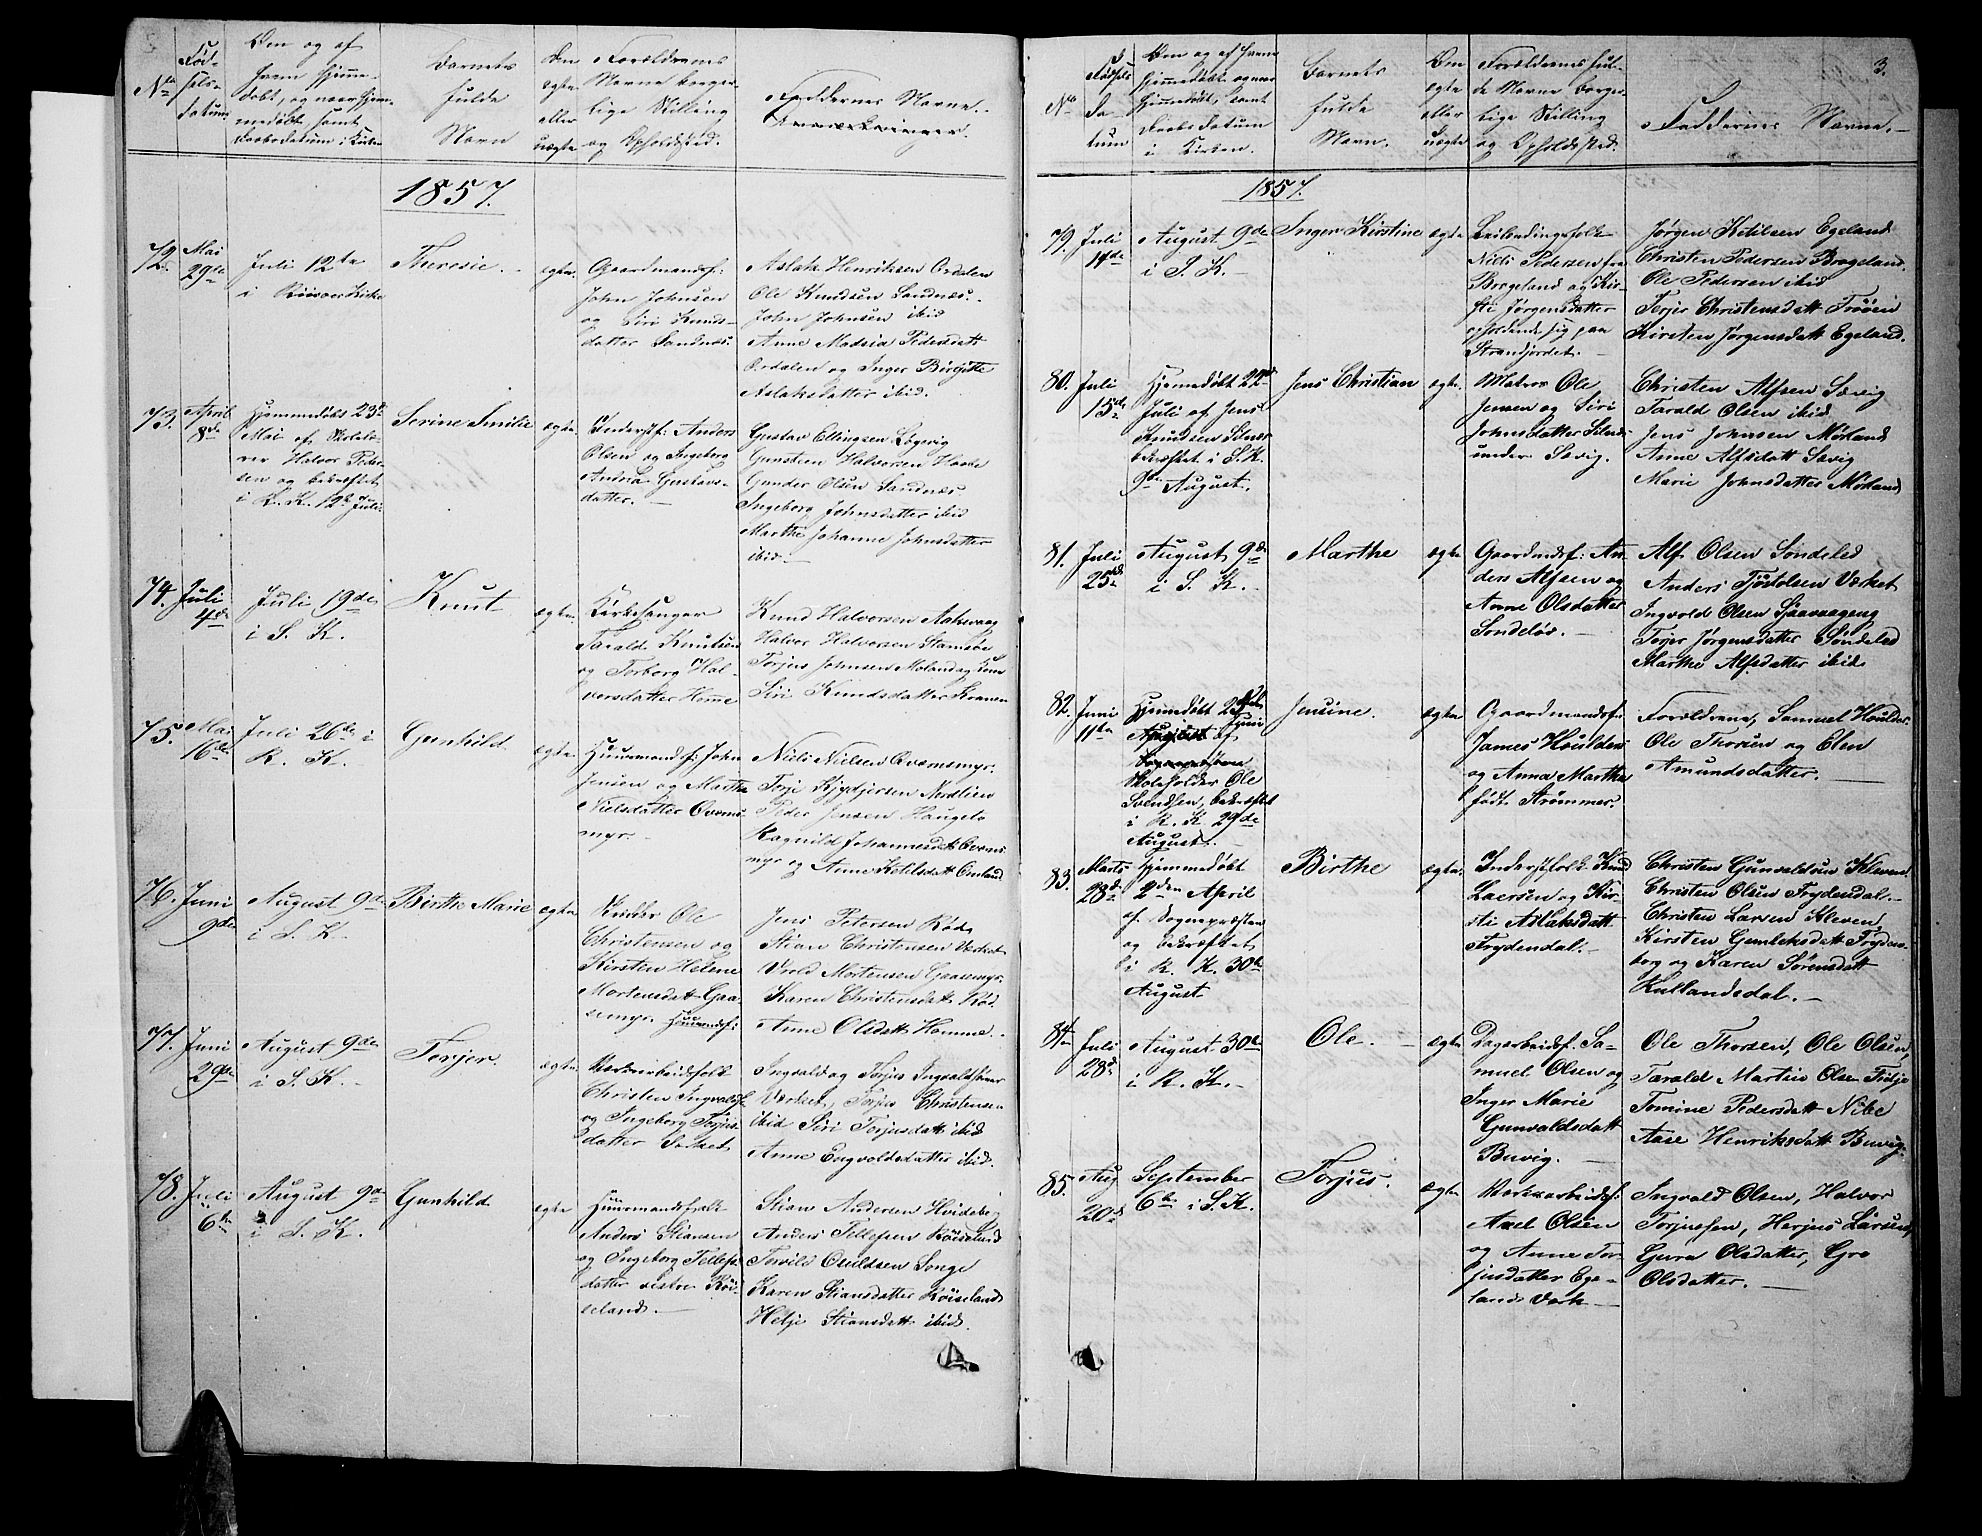 No
Fød-
sels-
datum
Om og af
hvem hjemme-
døbt, og naar hjem-
medøbt, samt
Daabsdatum i Kirken
Barnets
fulde
Navn
Om
ægte
eller
uægte
Forældrenes
Navne borger-
lige Stilling
og Opholdssted.
Faddernes Navne.
Anmærkninger.
1857.
72.
Mai
29de
Juli 12te
i Riisøer Kirke
Theresie.
ægte
Gaardmandsf:
John Johnsen
og Siri Knuds-
datter Sandnæs.
Aslak Henriksen Ordalen
Ole Knudsen Sandnæs.
John Johnsen ibid
Anne Madsia Pedersdatt
Ordalen og Inger Birgitte
Aslaksdatter ibid.
73.
April
8de
Hjemmedøbt 23de
Mai af Skolelæ-
rer Halvor Peder-
sen og bekræftet
i S. K. 12te Juli
Serine Emilie
ægte
Inderstf: Anders
Olsen og Ingeborg
Andrea Gustavs-
datter.
Gustav Ellingsen Løgvig
Gunsten Halvorsen
Gunder Olsen Sandnæs
Ingeborg Johnsdatter ibid
Marthe Johanne Johnsdatter
ibid.
74.
Juli
4de
Juli 19de
i S. K.
Knut
ægte
Kirkesanger
Tarald Knutsen
og Torborg Hal-
vorsdatter Homme
Knud Halvorsen Aakvaag
Halvor Halvorsen Stamsøe
Torjus Johnsen Moland og Kone
Siri Knudsdatter Kranen
75.
Mai
16de
Juli 26de i
R. K.
Gunhild
ægte
Huusmandsf: John
Jensen og Martha
Nielsdatter Qvams-
myr.
Niels Nielsen Qvamsmyr.
Torje Kjydjersen Nordlien
Peder Jensen Haugelo
Ragnild Johannesdatt Qvams-
myr og Anne Ketilsdatt Omland
76.
Juni
9de
August 9de
i S. K.
Birthe Marie
ægte
Snidker Ole
Christensen og
Kirsten Helene
Mortensdatt Gaa-
semyr. Huusmandsf:
Jens Petersen Rød
Stian Christensen Værket
Vrold Mortensen Gaasemyr.
Karen Christensdatt Rød
Anne Olsdatt Homme.
77.
Juni
29de
August 9de
i S. K.
Torjer.
ægte
Værksarbeidsfolk
Christen Ingvaldsen
og Ingeborg Torjus-
datter Værket
Ingvald og Torjus Ingvaldsener
Værket, Torjus Christensen
ibid Siri Torjusdatt ibid
Anne Engvoldsdatter ibid.
78.
Juli
6te
August 9de
i S. K.
Gunhild
ægte
Huusmandsfolk
Anders Stiansen
og Ingeborg Tellefs-
datter vestre Røi-
seland.
Stian Andersen Hvideberg
Anders Tellefsen Røiseland
Torvild Osuldsen Songe
Karen Stiansdatter Røiseland
Helje Stiansdatt ibid.
3.
No
Fødsels
Da-
tum
Om og af hvem
hjemmedøbt og naar
hjemmedøbt, samt
Daabsdatum
i Kirken.
Barnets
fulde
Navn.
Om
ægte
eller
uægte
Forældrenes ful-
de Navne borger-
lige Stilling
og Opholdssted.
Faddernes Navne.
1857.
79.
Juli
14de
August 9de
i S. K.
Inger Kirstine
ægte
Leilendingsfolk
Niels Pedersen fra
Brogeland og Kir-
sti Jørgensdatter
opholdende sig paa
Strandjordet.
Jørgen Ketilsen Egeland
Christen Pedersen Brogeland.
Ole Pedersen ibid
Torjer Christensdatt Trøien
Kirsten Jørgensdatt Egeland.
80.
Juli
15de
Hjemmedøbt 22de
Juli af Jens
Knudsen Silnes
bekræftet i S. K.
9de August.
Jens Christian
ægte.
Matros Ole
Jensen og Siri
Johnsdatter Silnes
under Sævig.
Christen Alfsen Sævig
Tarald Olsen ibid
Jens Johnsen Mørland
Anne Alfsdatt Sævig
Marie Johnsdatter Mørland
81.
Juli
25de
August 9de
i S. K.
Marthe
ægte
Gaardmdsf: An-
ders Alfsen og
Anne Olsdatter
Søndeløv.
Alf Olsen Søndeled
Anders Tjøstolsen Værket
Ingvold Olsen Sjaavaageng
Torjer Jørgensdatter Søndeled
Marthe Alfsdatter ibid
82.
Juni
11te
Hjemmedøbt 29de
August Juni af
Sognepræsten
Skoleholder Ole
Svendsen, bekræftet
i R. K 29de
August.
Jensine.
ægte
Gaardmandsf:
James Houlder
og Anna Martha
født Strømmer.
Forældrene, Samuel Houlder
Ole Thorsen og Elen
Amundsdatter.
83.
Marts
28de
Hjemmedøbt
2den April
af Sognepræsten
og bekræftet
i R. K. 30te
August
Birthe
ægte.
Inderstfolk Knud
Laersen og Kir-
sti Aslaksdatt
Frydendal.
Christen Gunvaldsen Kleven
Christen Olsen Frydendal.
Christen Larsen Kleven,
Kirsten Gunleksdatt Fryden-
borg og Karen Sørensdatt
Kullandsdal.
84.
Juli
28de
August 30te
i R. K.
Ole.
ægte
Dagarbeidsf. Sa-
muel Olsen og
Inger Marie
Gunvaldsdatt
Buvig.
Ole Thorsen, Ole Olsen,
Tarald Martin Olsen Tidje
Tomine Pedersdatt Nibe
Aase Henriksdatt Buvig
85.
Aug
20de
September
6te i S. K.
Torjus.
ægte
Værksarbeidsf:
Axel Olsen
og Anne Tor-
jusdatter Ege-
lands Værk
Ingvald Olsen, Halvor
Torjussen, Herjus Larsen,
Guro Olsdatter, Gro
Olsdatter.